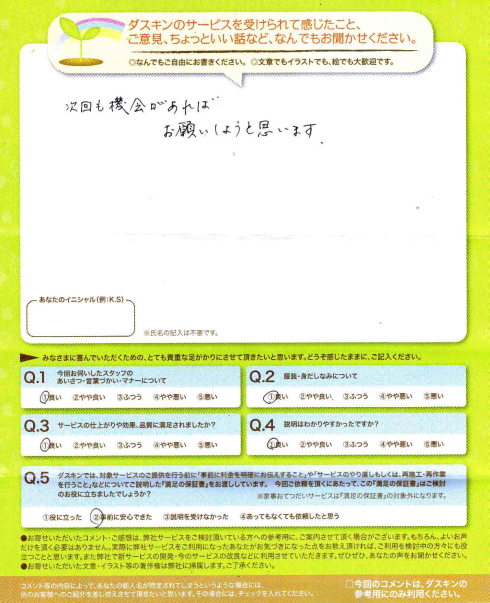 ダスキンのサービスを受けられて感じたこと、
ご意見、ちょっといい話など、なんでもお聞かせください。
◎なんでもご自由にお書きください。◎文章でもイラストでも、絵でも大歓迎です。
次回も機会があれば
お願いしようと思います
あなたのイニシャル(例:K.S)
※氏名の記入は不要です。
みなさまに喜んでいただくための、とても貴重な足がかりにさせて頂きたいと思います。どうぞ感じたままに、ご記入ください。
Q.1 今回お伺いしたスタッフの
あいさつ・言葉づかい・マナーについて
①良い ②やや良い ③ふつう ④やや悪い ⑤悪い
Q.2 服装・身だしなみについて
①良い ②やや良い ③ふつう ④やや悪い ⑤悪い
Q.3 サービスの仕上がりや効果、品質に満足されましたか?
①良い ②やや良い ③ふつう ④やや悪い ⑤悪い
Q.4 説明はわかりやすかったですか?
①良い ②やや良い ③ふつう ④やや悪い ⑤悪い
Q.5 ダスキンでは、対象サービスのご提供を行う前に「事前に料金を明確にお伝えすること」や「サービスのやり直しもしくは、再施工・再作業
を行うこと」などについてご説明した『満足の保証書』をお渡ししています。 今回ご依頼を頂くにあたって、この『満足の保証書』はご検討
のお役に立ちましたでしょうか?
※家事おてつだいサービスは『満足の保証書』の対象外になります。
①役に立った ②事前に安心できた ③説明を受けなかった ④あってもなくても依頼したと思う
●お寄せいただいたコメント・ご感想は、弊社サービスをご検討頂いている方への参考用に、ご案内させて頂く場合がございます。もちろん、よいお声
だけを頂く必要はありません。実際に弊社サービスをご利用になったあなたがお気づきになった点をお教え頂ければ、ご利用を検討中の方々にも役
立つことと思います。また弊社で新サービスの開発・今のサービスの改良などに利用させていただきます。ぜひぜひ、あなたの声をお聞かせください。
●お寄せいただいた文章・イラスト等の著作権は弊社に帰属します。ご了承ください。
コメント等の内容によって、あなたが個人名が特定されてしまうような場合には、
他のお客様へのご紹介を差し控えさせて頂きたいと思います。その場合には、チェックを入れてください。
□今回のコメントは、ダスキンの
参考用にのみ利用ください。